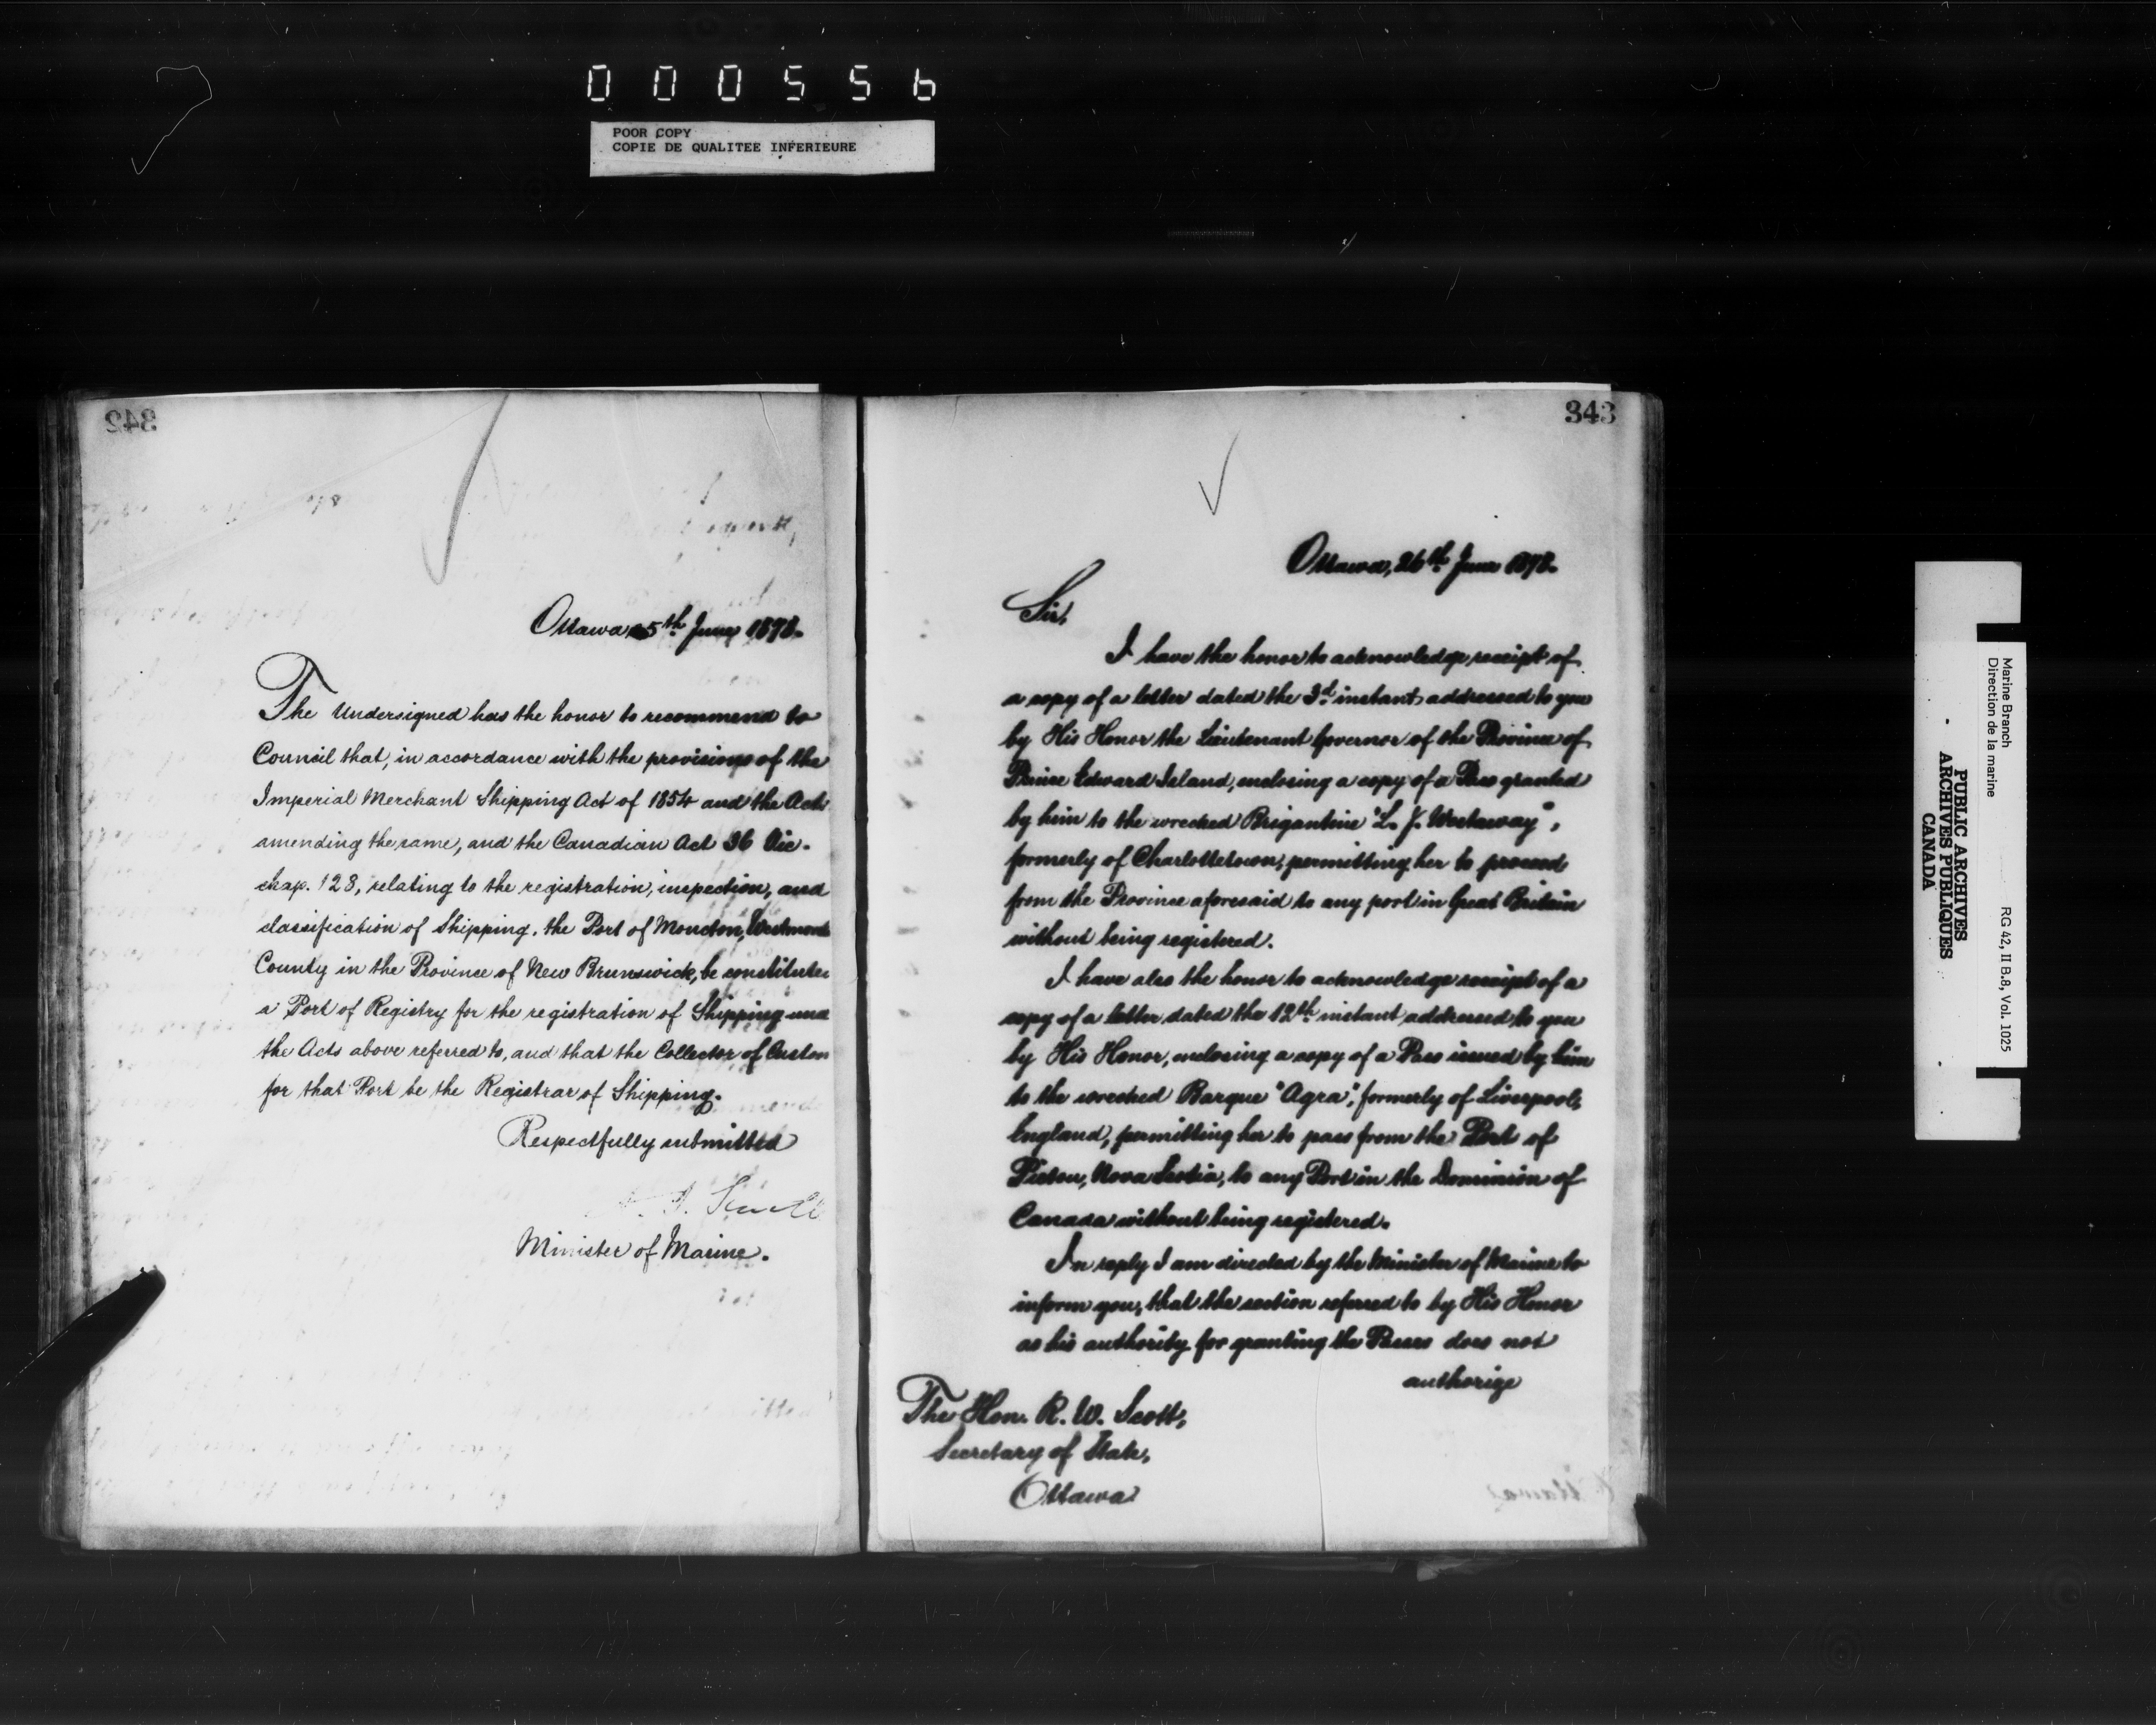 000556
POOR COPY
COPIE DE QUALITEE INFERIEURE
342
Ottawa 25th June 1878.
The Undersigned has the honor to recommend to
Council that, in accordance with the provisions of the
Imperial Merchant Shipping Act of 1854 and the Acts
amending the same, and the Canadian Act 36 Vic.
chap. 128, relating to the registration, inspection, and
classification of Shipping, the Port of Moncton, Westmor
County in the Province of New Brunswick, be constitute
a Port of Registry for the registration of Shipping und
the Acts above referred to, and that the Collector of Custom
for that Port be the Registrar of Shipping.
Respectfully submitted
Minister of Marine.
343
Ottawa, 26th June 1878.
Sir,
I have the honor to acknowledge receipt of
a copy of a letter dated the 3d instant addressed to you
by His Honor the Lieutenant Governor of the Province of
Prince Edward Island, enclosing a copy of a Pass granted
by him to the wrecked Brigantine "L. J. Westaway",
formerly of Charlottetown, permitting her to proceed
from the Province aforesaid to any port in Great Britain
without being registered.
I have also the honor to acknowledge receipt of a
copy of a letter dated the 12th instant addressed to you
by His Honor, enclosing a copy of a Pass issued by him
to the wrecked Barque "Agra", formerly of Liverpool,
England, permitting her to pass from the Port of
Pictou, Nova Scotia, to any Port in the Dominion of
Canada without being registered.
In reply I am directed by the Minister of Marine to
inform you, that the section referred to by His Honor
as his authority for granting the Passes does not
authorize
The Hon. R. W. Scott,
Secretary of State,
Ottawa
Marine Branch
Direction de la marine
RG 42, II B.8, Vol. 1025
PUBLIC ARCHIVES
ARCHIVES PUBLIQUES
CANADA